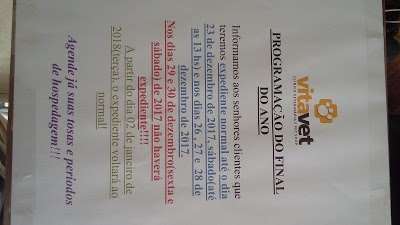 vitavet
PROGRAMAÇÃO DO FINAL
DO ANO
Informamos aos senhores clientes que
teremos expediente normal até o dia
23 de dezembro de 2017, sábado(até
as 13 hs) e nos dias 26 , 27 e 28 de
dezembro de 2017.
Nos dias 29 e 30 de dezembro(sexta e
sábado) de 2017 não haverá
expediente!!!!
A partir do dia 02 de janeiro de
2018(terça), o expediente voltará ao
normal!
Agende já suas tosas e períodos
de hospedagem!!!